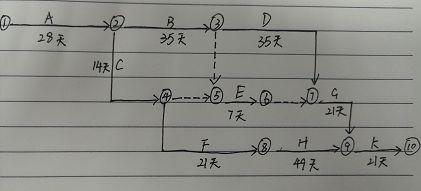 ① A ② B ③ D
28天 35天 35天
14天 C
④ ⑤ E ⑥ ⑦ G
7天 21天
F ⑧ H ⑨ K ⑩
21天 49天 21天